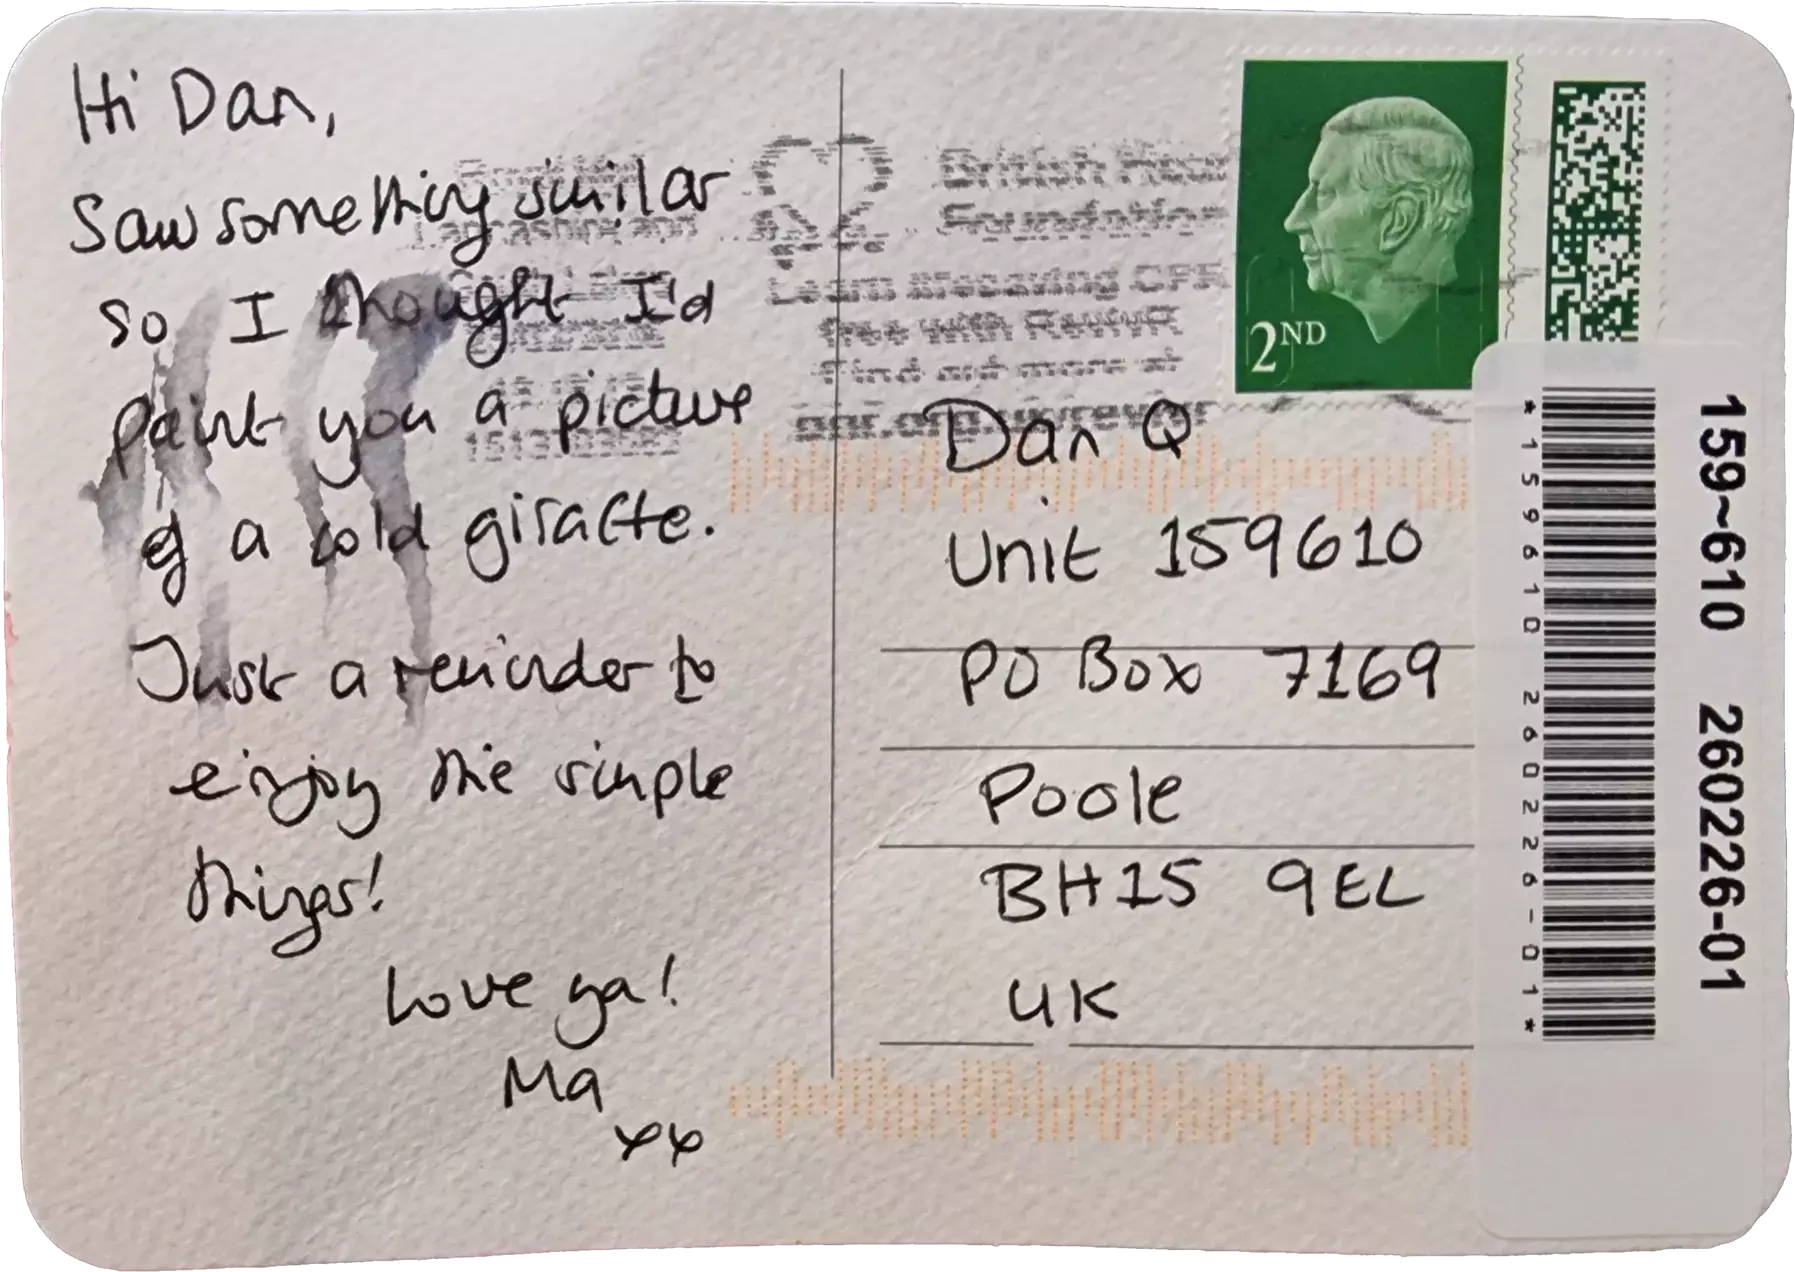 Hi Dan,
Saw something similar
so I thought I'd
paint you a picture
of a cold giraffe.
Just a reminder to
enjoy the simple
things!
Love ya!
Ma
xx
Royal Mail
Lancashire and
British Heart
Foundation
Learn lifesaving CPR
free with RevivR
Find out more at
2ND
Dan Q
Unit 159610
PO Box 7169
Poole
BH15 9EL
UK
*159610 260226-01*
159~610 260226-01